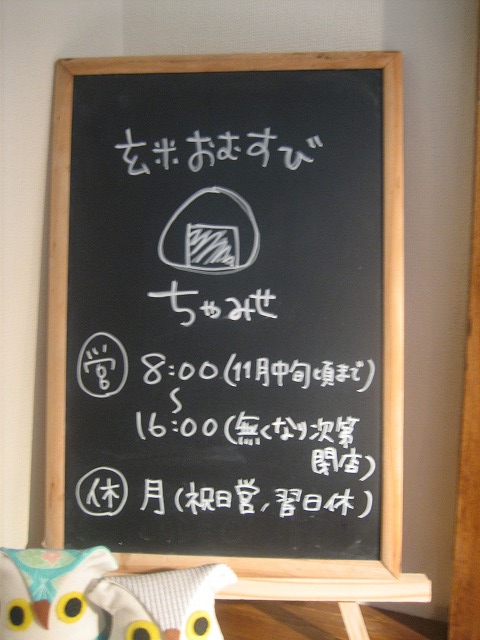 玄米おむすび
ちゃみせ
営 8:00(11月中旬頃まで)
〜
16:00(無くなり次第
閉店)
休 月(祝日営,翌日休)